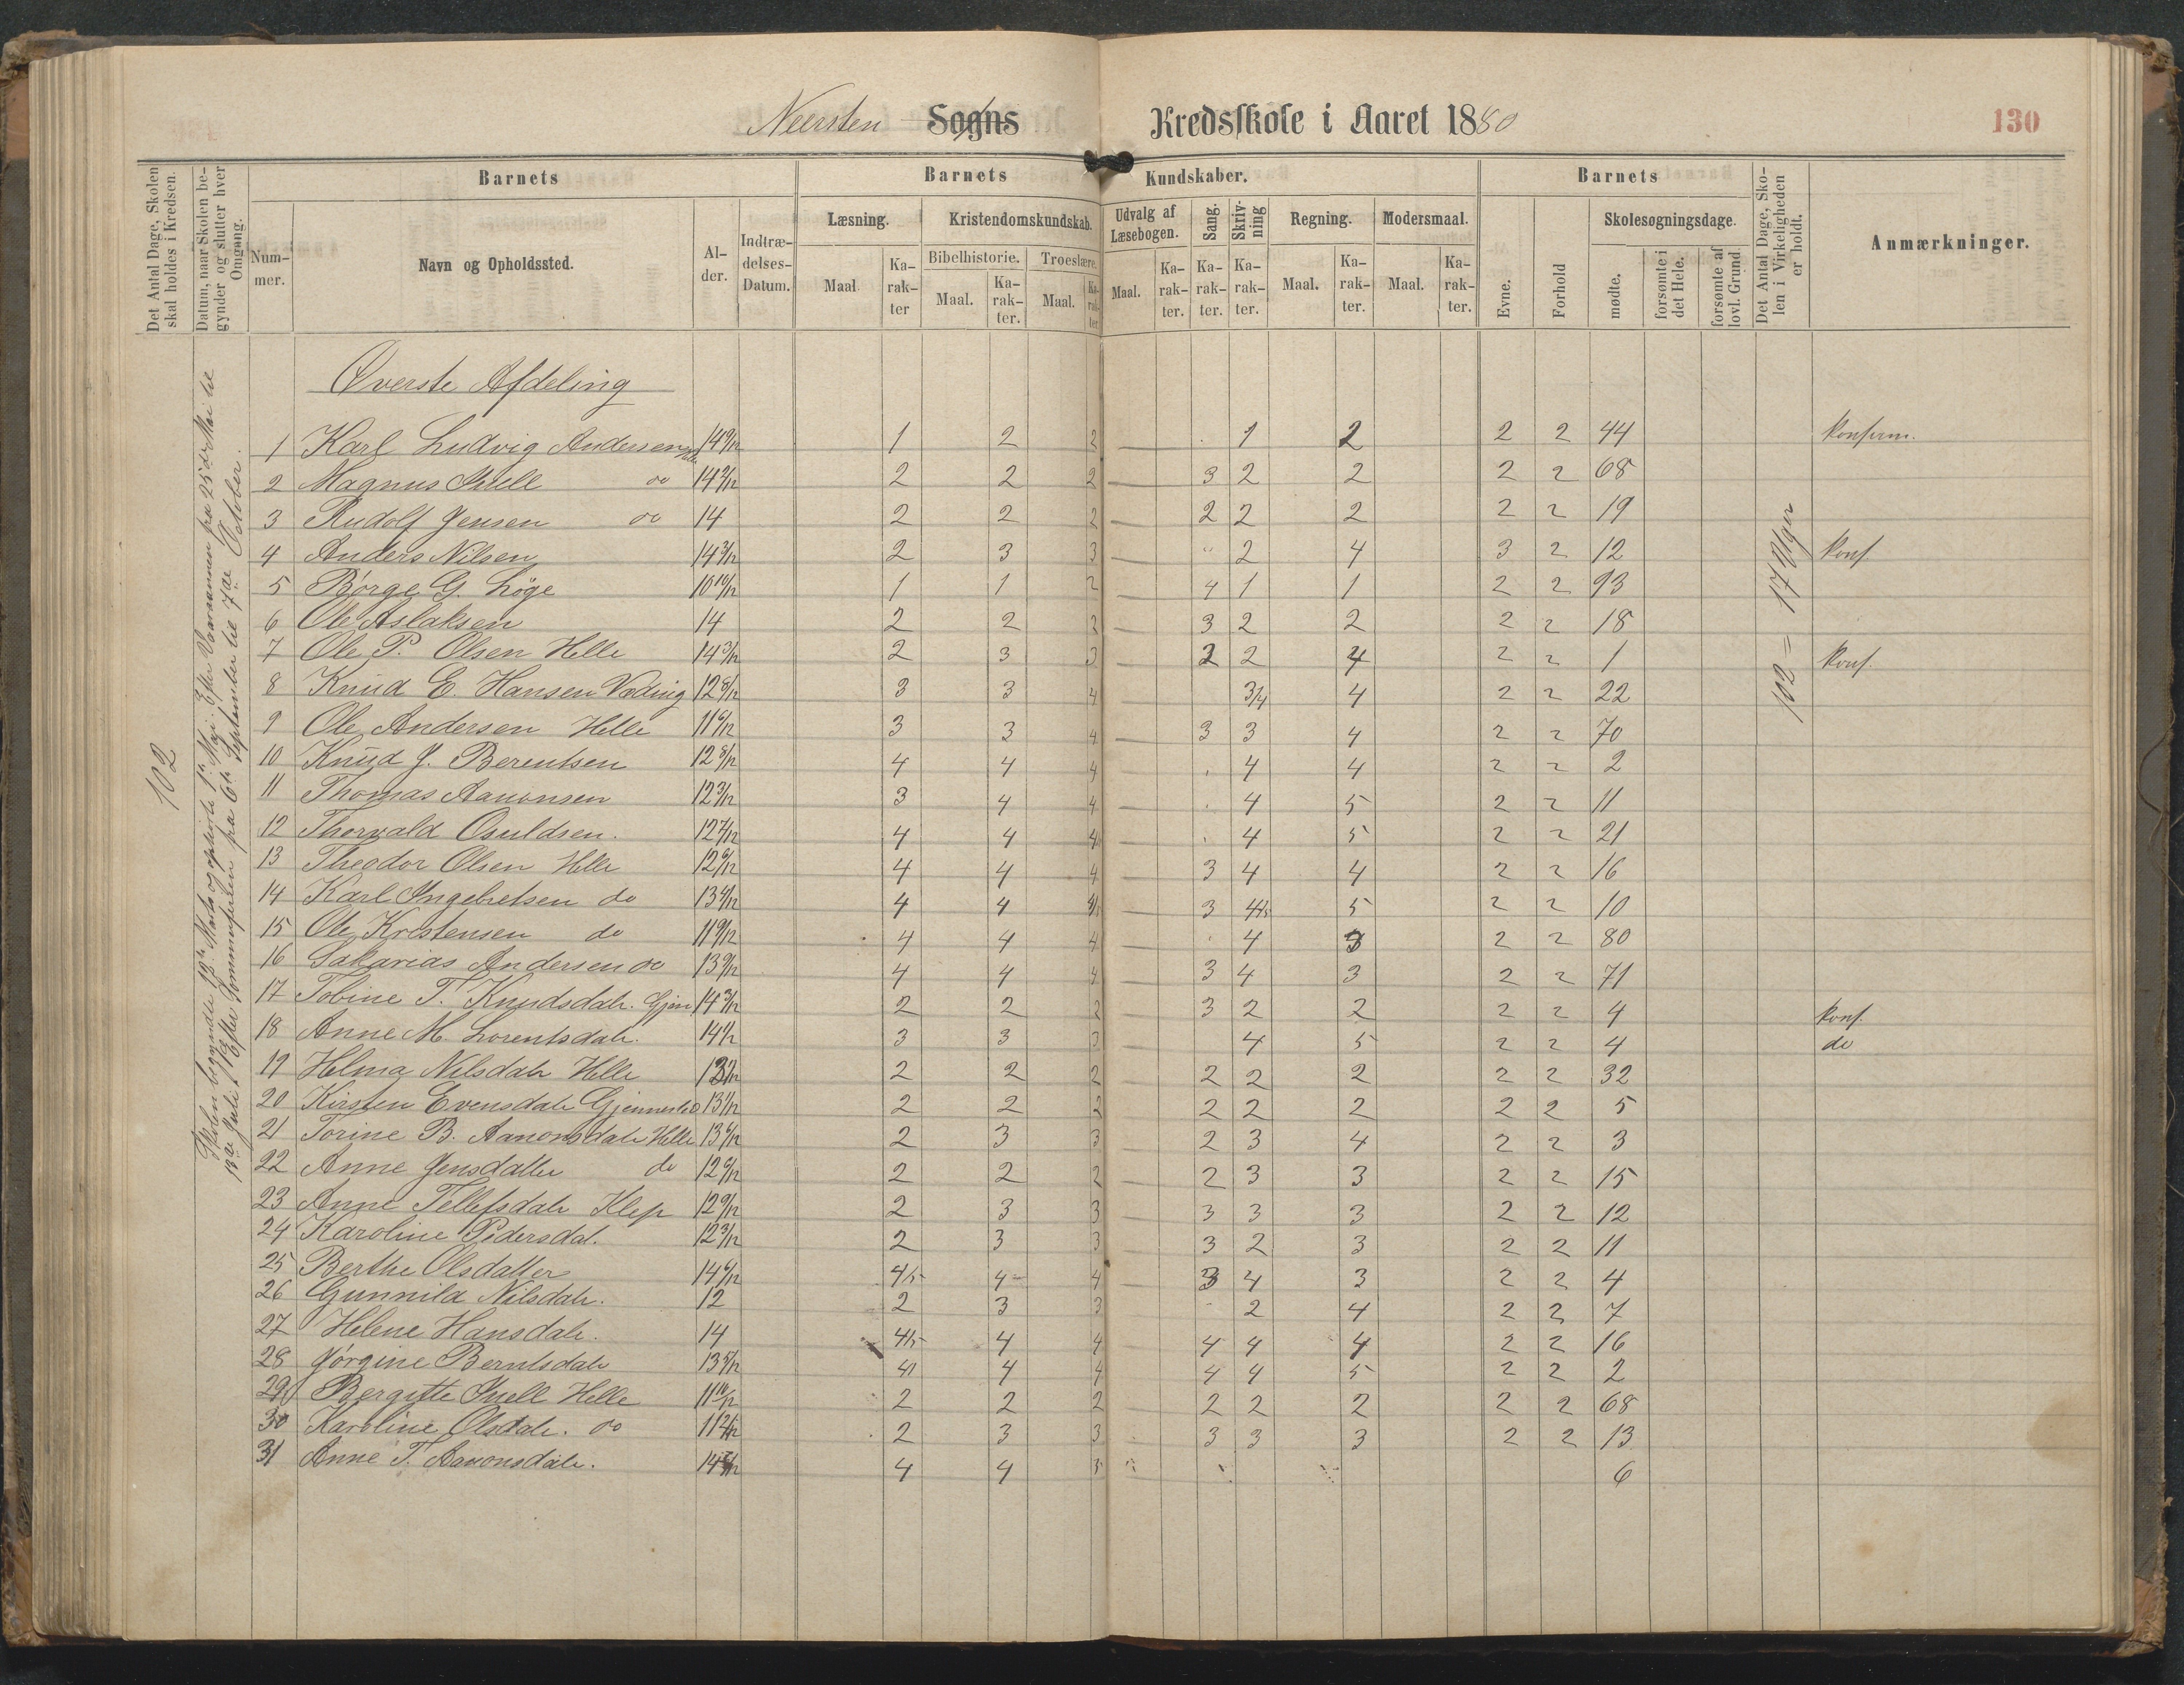 Neersten Sogns Kredsskole i Aaret 1880 130
Det Antal Dage, Skolen skal holdes i Kredsen.
Datum, naar Skolen begynder og slutter hver Omgang.
Barnets
Nummer.
Navn og Opholdssted.
Alder.
Indtrædelses-Datum.
Barnets Kundskaber.
Læsning.
Maal
Karakter
Kristendomskundskab.
Bibelhistorie.
Maal.
Karakter.
Troeslære.
Maal.
Karakter
Udvalg af Læsebogen.
Maal.
Karakter.
Sang.
Karakter.
Skrivning
Karakter.
Regning.
Maal.
Karakter.
Modersmaal.
Maal.
Karakter.
Barnets
Evne.
Forhold
Skolesøgningsdage.
mødte.
forsømte i det Hele.
forsømte af lovl. Grund
Det Antal Dage, Skolen i Virkeligheden er holdt.
Anmærkninger.
102
Efter Vaaraannen fra 25de Mai til
13de Juli. Efter Sommerferien fra 6te September til 7de October.
102 = 17 Uger
Øverste Afdeling
1 Karl Ludvig Andersen 1 2 2 1 2 2 2 44 konfirm.
2 Magnus do 2 2 2 3 2 2 2 2 68
3 Rudolf Jensen do 14 2 2 2 2 2 2 2 2 19
4 Anders Nilsen 14 3/12 2 3 3 " 2 4 3 2 12 konf.
5 Børge G. Løge 10 10/12 1 1 2 4 1 1 2 2 93
6 Ole Aslaksen 14 2 2 2 3 2 2 2 2 18
7 Ole P. Olsen Helle 14 3/12 2 3 3 2 2 4 2 2 1 konf.
8 Knud E. Hansen Væding 12 8/12 3 3 4 3/4 4 2 2 22
9 Ole Andersen Helle 11 6/12 3 3 4 3 3 4 2 2 70
10 Knud J. Berentsen 12 8/12 4 4 4 4 4 2 2 2
11 Thomas Aanonsen 12 3/12 3 4 4 4 5 2 2 11
12 Thorvald Osuldsen. 12 7/12 4 4 4 4 5 2 2 21
13 Theodor Olsen Helle 12 6/12 4 4 4 3 4 4 2 2 16
14 Karl Ingebretsen do 4 4 4/5 3 4/5 5 2 2 10
15 Ole Kristensen do 11 9/12 4 4 4 4 3 2 2 80
16 Sakarias Andersen do 13 9/12 4 4 4 3 4 3 2 2 71
17 Tobine T. Knudsdatr. Gjen 14 3/12 2 2 2 3 2 2 2 2 4 konf.
18 Anne M. Lorentsdatr. 3 3 3 4 5 2 2 4 do
19 Helma Nilsdatr Helle 2 2 2 2 2 2 2 2 32
20 Kirsten Evensdatr 2 2 2 2 2 2 2 2 5
21 Torine B. Aanonsdatr Helle 2 3 3 2 3 4 2 2 3
22 Anne Jensdatter do 12 6/12 2 2 2 2 3 3 2 2 15
23 Anne Tellefsdatr Klep 12 9/12 2 3 3 3 3 3 2 2 12
24 Karoline Pedersdat. 12 3/12 2 3 3 3 2 3 2 2 11
25 Berthe Olsdatter 14 6/12 4/5 4 4 3 4 3 2 2 4
26 Gunnild Nilsdatr. 12 2 3 3 2 4 2 2 7
27 Helene Hansdatr. 14 4/5 4 4 4 4 4 2 2 16
28 Jørgine Berntsdatr 13 5/12 4 4 4 4 5 2 2 2
29 Bergitte Helle 11 10/12 2 2 2 2 2 2 2 2 68
30 Karoline Olsdatr. do 2 3 3 3 3 3 2 2 13
31 Anne T. Aanonsdatr. 4 4 3 6